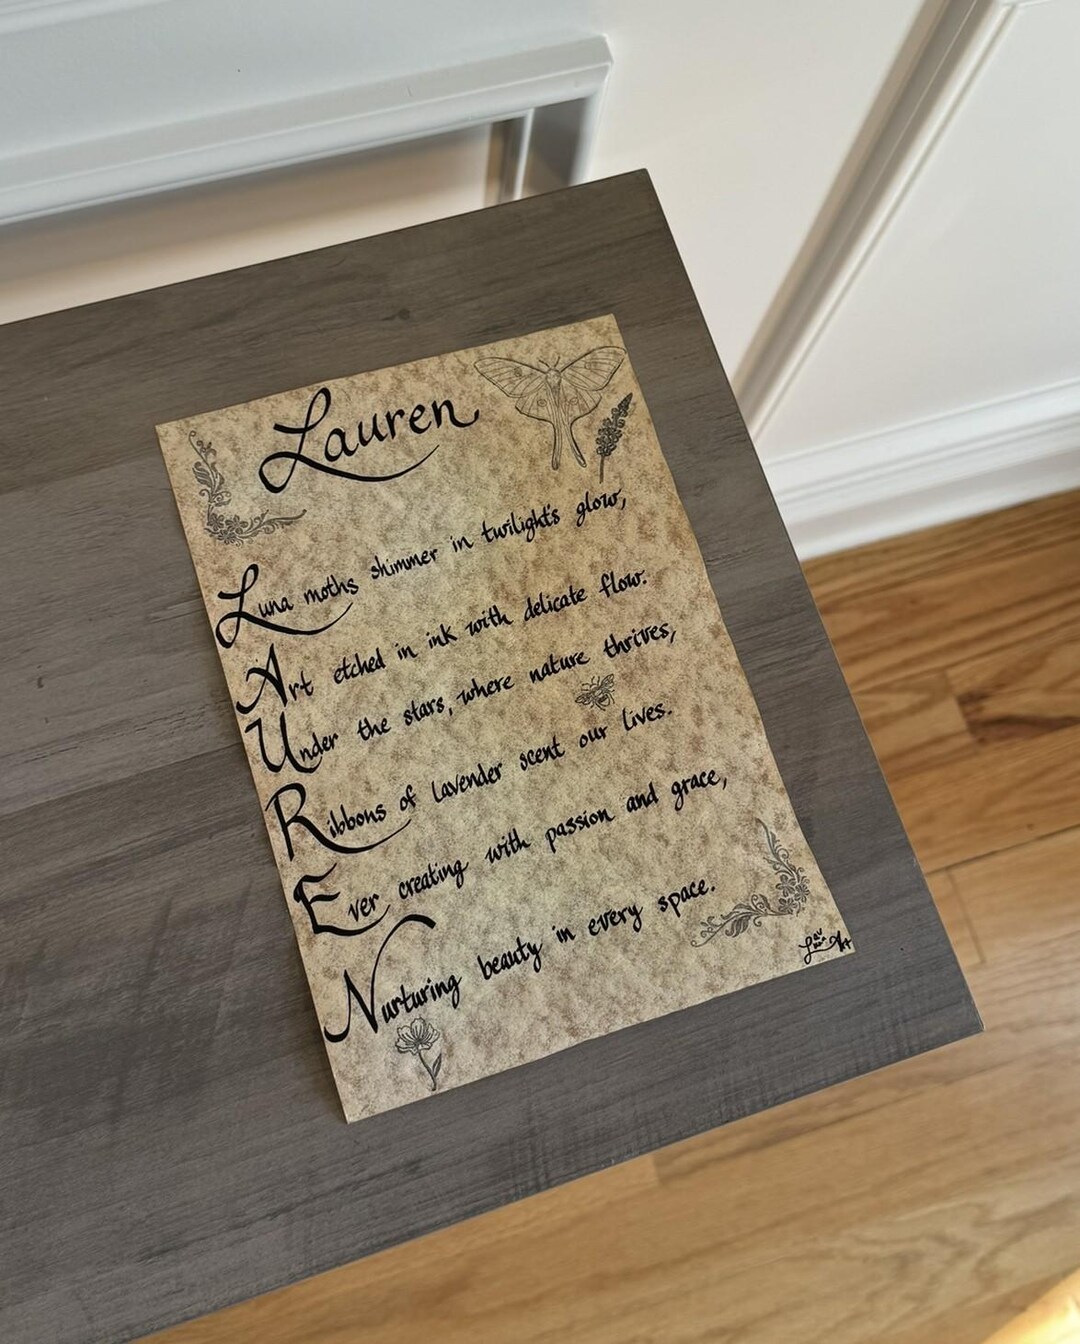 Lauren
Luna moths shimmer in twilight's glow,
Art etched in ink with delicate flow.
Under the stars, where nature thrives,
Ribbons of lavender scent our lives.
Ever creating with passion and grace,
Nurturing beauty in every space.